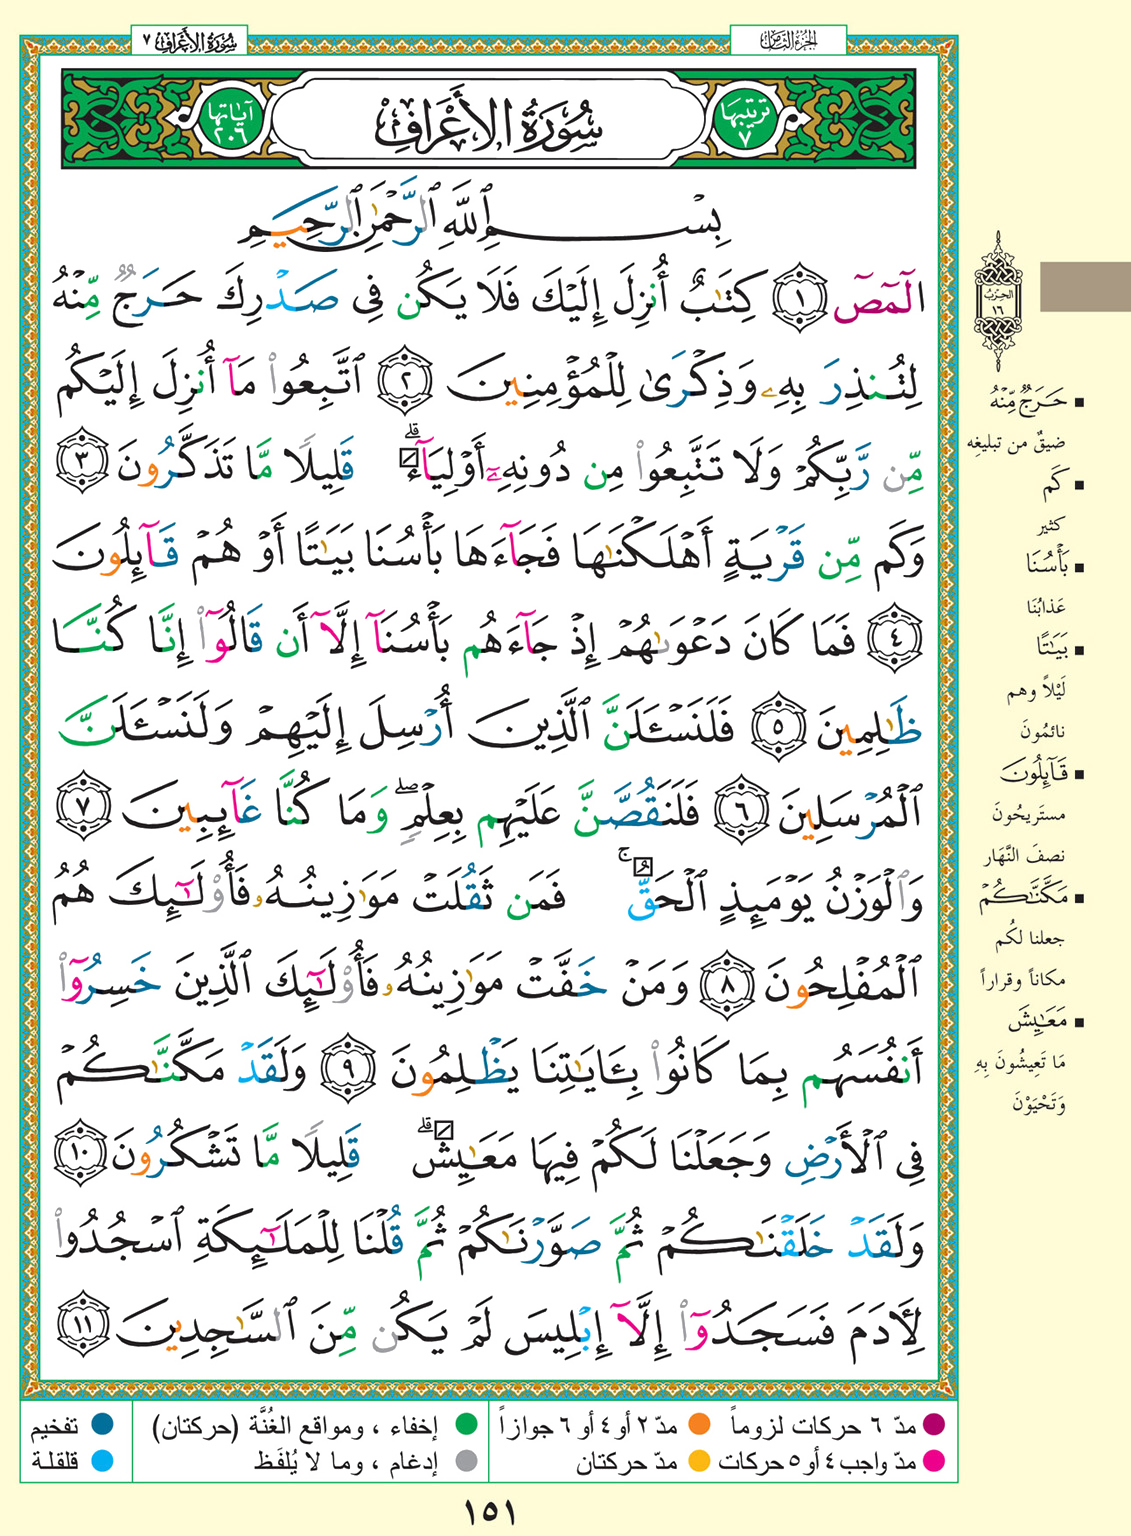 الجزء الثامن
سورة الأعراف ٧
ترتيبها ٧
سُورَةُ الأَعْرَافِ
آياتها ٢٠٦
بِسْمِ ٱللَّهِ ٱلرَّحْمَٰنِ ٱلرَّحِيمِ
الٓمٓصٓ ١ كِتَٰبٌ أُنزِلَ إِلَيْكَ فَلَا يَكُن فِى صَدْرِكَ حَرَجٌ مِّنْهُ
لِتُنذِرَ بِهِۦ وَذِكْرَىٰ لِلْمُؤْمِنِينَ ٢ ٱتَّبِعُوا۟ مَآ أُنزِلَ إِلَيْكُم
مِّن رَّبِّكُمْ وَلَا تَتَّبِعُوا۟ مِن دُونِهِۦٓ أَوْلِيَآءَ ۗ قَلِيلًا مَّا تَذَكَّرُونَ ٣
وَكَم مِّن قَرْيَةٍ أَهْلَكْنَٰهَا فَجَآءَهَا بَأْسُنَا بَيَٰتًا أَوْ هُمْ قَآئِلُونَ
٤ فَمَا كَانَ دَعْوَىٰهُمْ إِذْ جَآءَهُم بَأْسُنَآ إِلَّآ أَن قَالُوٓا۟ إِنَّا كُنَّا
ظَٰلِمِينَ ٥ فَلَنَسْـَٔلَنَّ ٱلَّذِينَ أُرْسِلَ إِلَيْهِمْ وَلَنَسْـَٔلَنَّ
ٱلْمُرْسَلِينَ ٦ فَلَنَقُصَّنَّ عَلَيْهِم بِعِلْمٍ ۖ وَمَا كُنَّا غَآئِبِينَ ٧
وَٱلْوَزْنُ يَوْمَئِذٍ ٱلْحَقُّ ۚ فَمَن ثَقُلَتْ مَوَٰزِينُهُۥ فَأُو۟لَٰٓئِكَ هُمُ
ٱلْمُفْلِحُونَ ٨ وَمَنْ خَفَّتْ مَوَٰزِينُهُۥ فَأُو۟لَٰٓئِكَ ٱلَّذِينَ خَسِرُوٓا۟
أَنفُسَهُم بِمَا كَانُوا۟ بِـَٔايَٰتِنَا يَظْلِمُونَ ٩ وَلَقَدْ مَكَّنَّٰكُمْ
فِى ٱلْأَرْضِ وَجَعَلْنَا لَكُمْ فِيهَا مَعَٰيِشَ ۗ قَلِيلًا مَّا تَشْكُرُونَ ١٠
وَلَقَدْ خَلَقْنَٰكُمْ ثُمَّ صَوَّرْنَٰكُمْ ثُمَّ قُلْنَا لِلْمَلَٰٓئِكَةِ ٱسْجُدُوا۟
لِـَٔادَمَ فَسَجَدُوٓا۟ إِلَّآ إِبْلِيسَ لَمْ يَكُن مِّنَ ٱلسَّٰجِدِينَ ١١
الحزب
١٦
■ حَرَجٌ مِّنْهُ
ضيقٌ من تبليغِه
■ كَم
كثير
■ بَأْسُنَا
عَذابُنَا
■ بَيَٰتًا
لَيْلاً وهم
نائمُونَ
■ قَآئِلُونَ
مستَريحُونَ
نصفَ النَّهَار
■ مَكَّنَّٰكُمْ
جعلنا لكُم
مكاناً وقراراً
■ مَعَٰيِشَ
مَا تَعِيشُونَ بِهِ
وَتَحْيَوْنَ
مدّ ٦ حركات لزوماً مدّ ٢ أو ٤ أو ٦ جوازاً إخفاء ، ومواقع الغُنَّة (حركتان) تفخيم
مدّ واجب ٤ أو ٥ حركات مدّ حركتان إدغام ، وما لا يُلفَظ قلقلة
١٥١